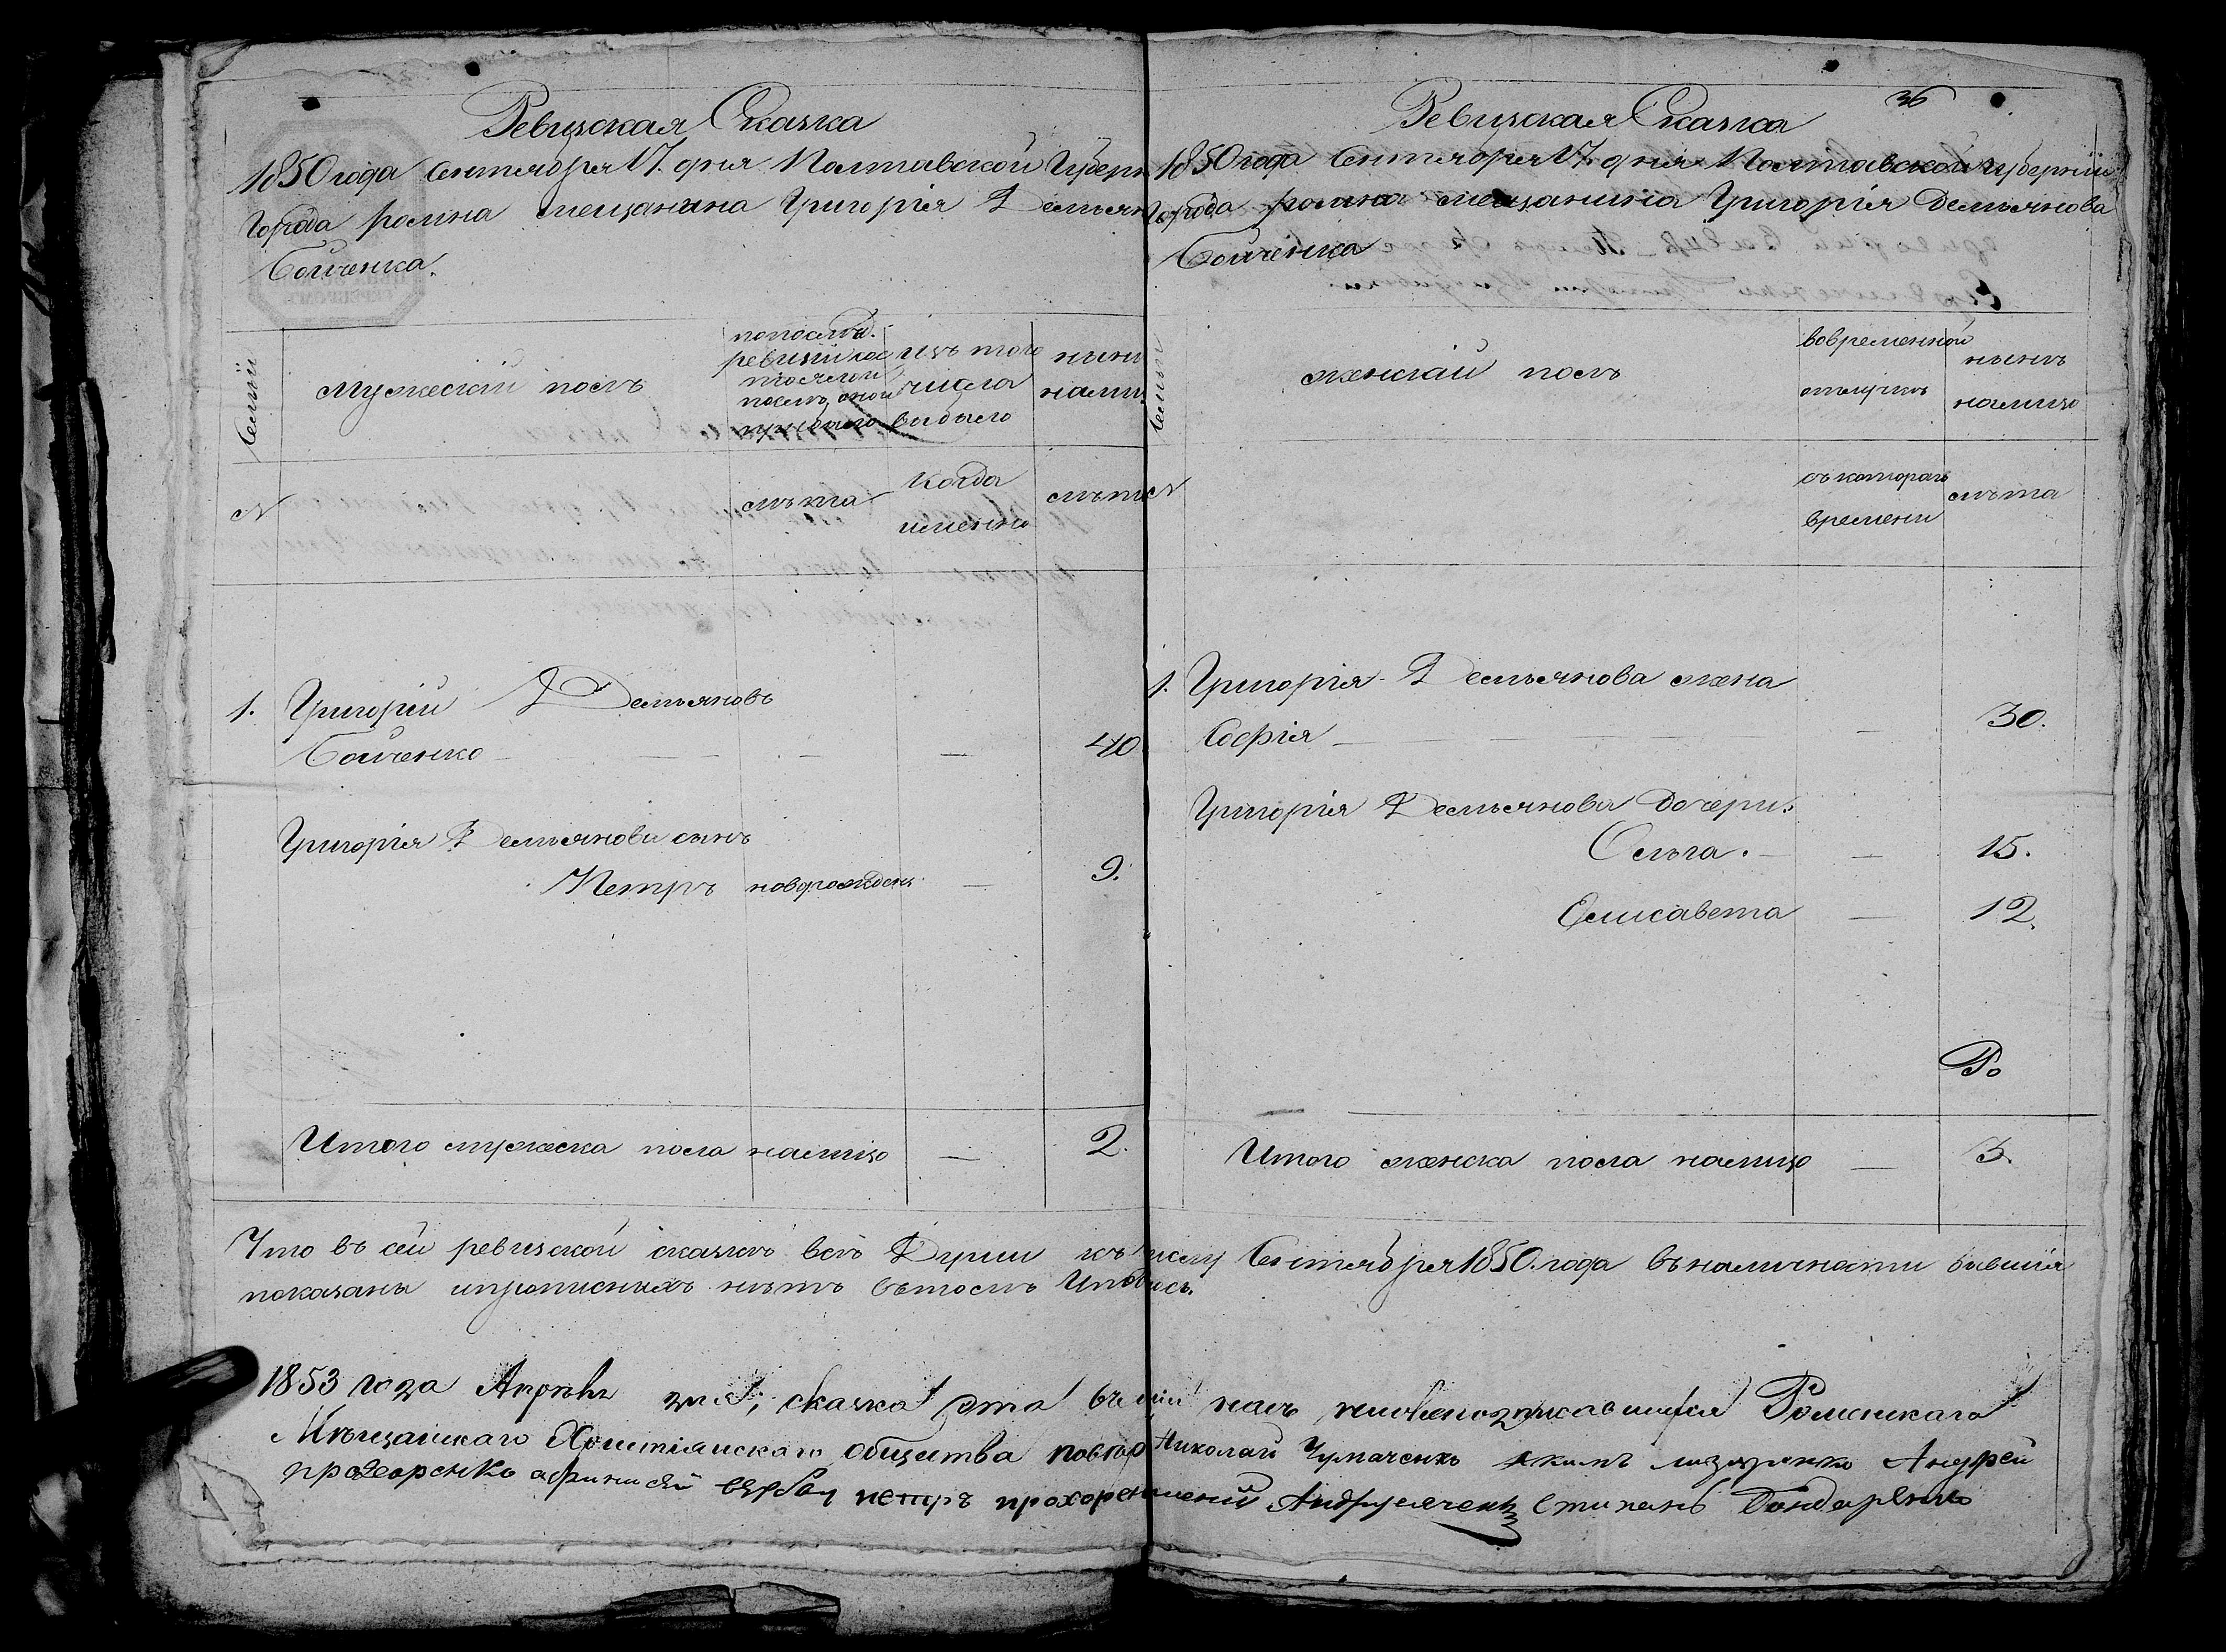 Ревизская Сказка
1850 года Сентября 17. дня Полтавской Губерн
Города ромна мещанина Григорія Демьян
Бойченка.
Семьи
мужескій полъ
по послѣд.
ревизіи сос
тояло и
послѣ оной
прибыло
изъ того
числа
выбыло
нынѣ
нали
N
лѣта
когда
именно
лѣта
1. Григорій Демьяновъ
Бойченко — — — — 40
Григорія Демьянова сынъ
Петръ новорожден — 9.
Итого мужеска пола налицо — 2.
36
Ревизская Сказка
1850 года Сентября 17. дня Полтавской губерніи
Города ромна мещанина Григорія Демьянова
Бойченка
Семьи
женскій полъ
во временной
отлучкѣ
нынѣ
налицо
N
съ котораго
времени
лѣта
1. Григорія Демьянова жена
Софія — — 30.
Григорія Демьянова дочери:
Ольга. — — 15.
Елисавета — 12.
Итого женска пола налицо — 3.
Что въ сей ревизской сказкѣ всѣ Души къ числу Сентября 1850. года въ наличности бывшія
показаны и прописныхъ нѣтъ въ томъ
1853 года сказка эта Роменскаго
Мѣщанскаго Христіянскаго общества Николай Чумаченко Андрей
петръ прохорен Степанъ Бондаренко